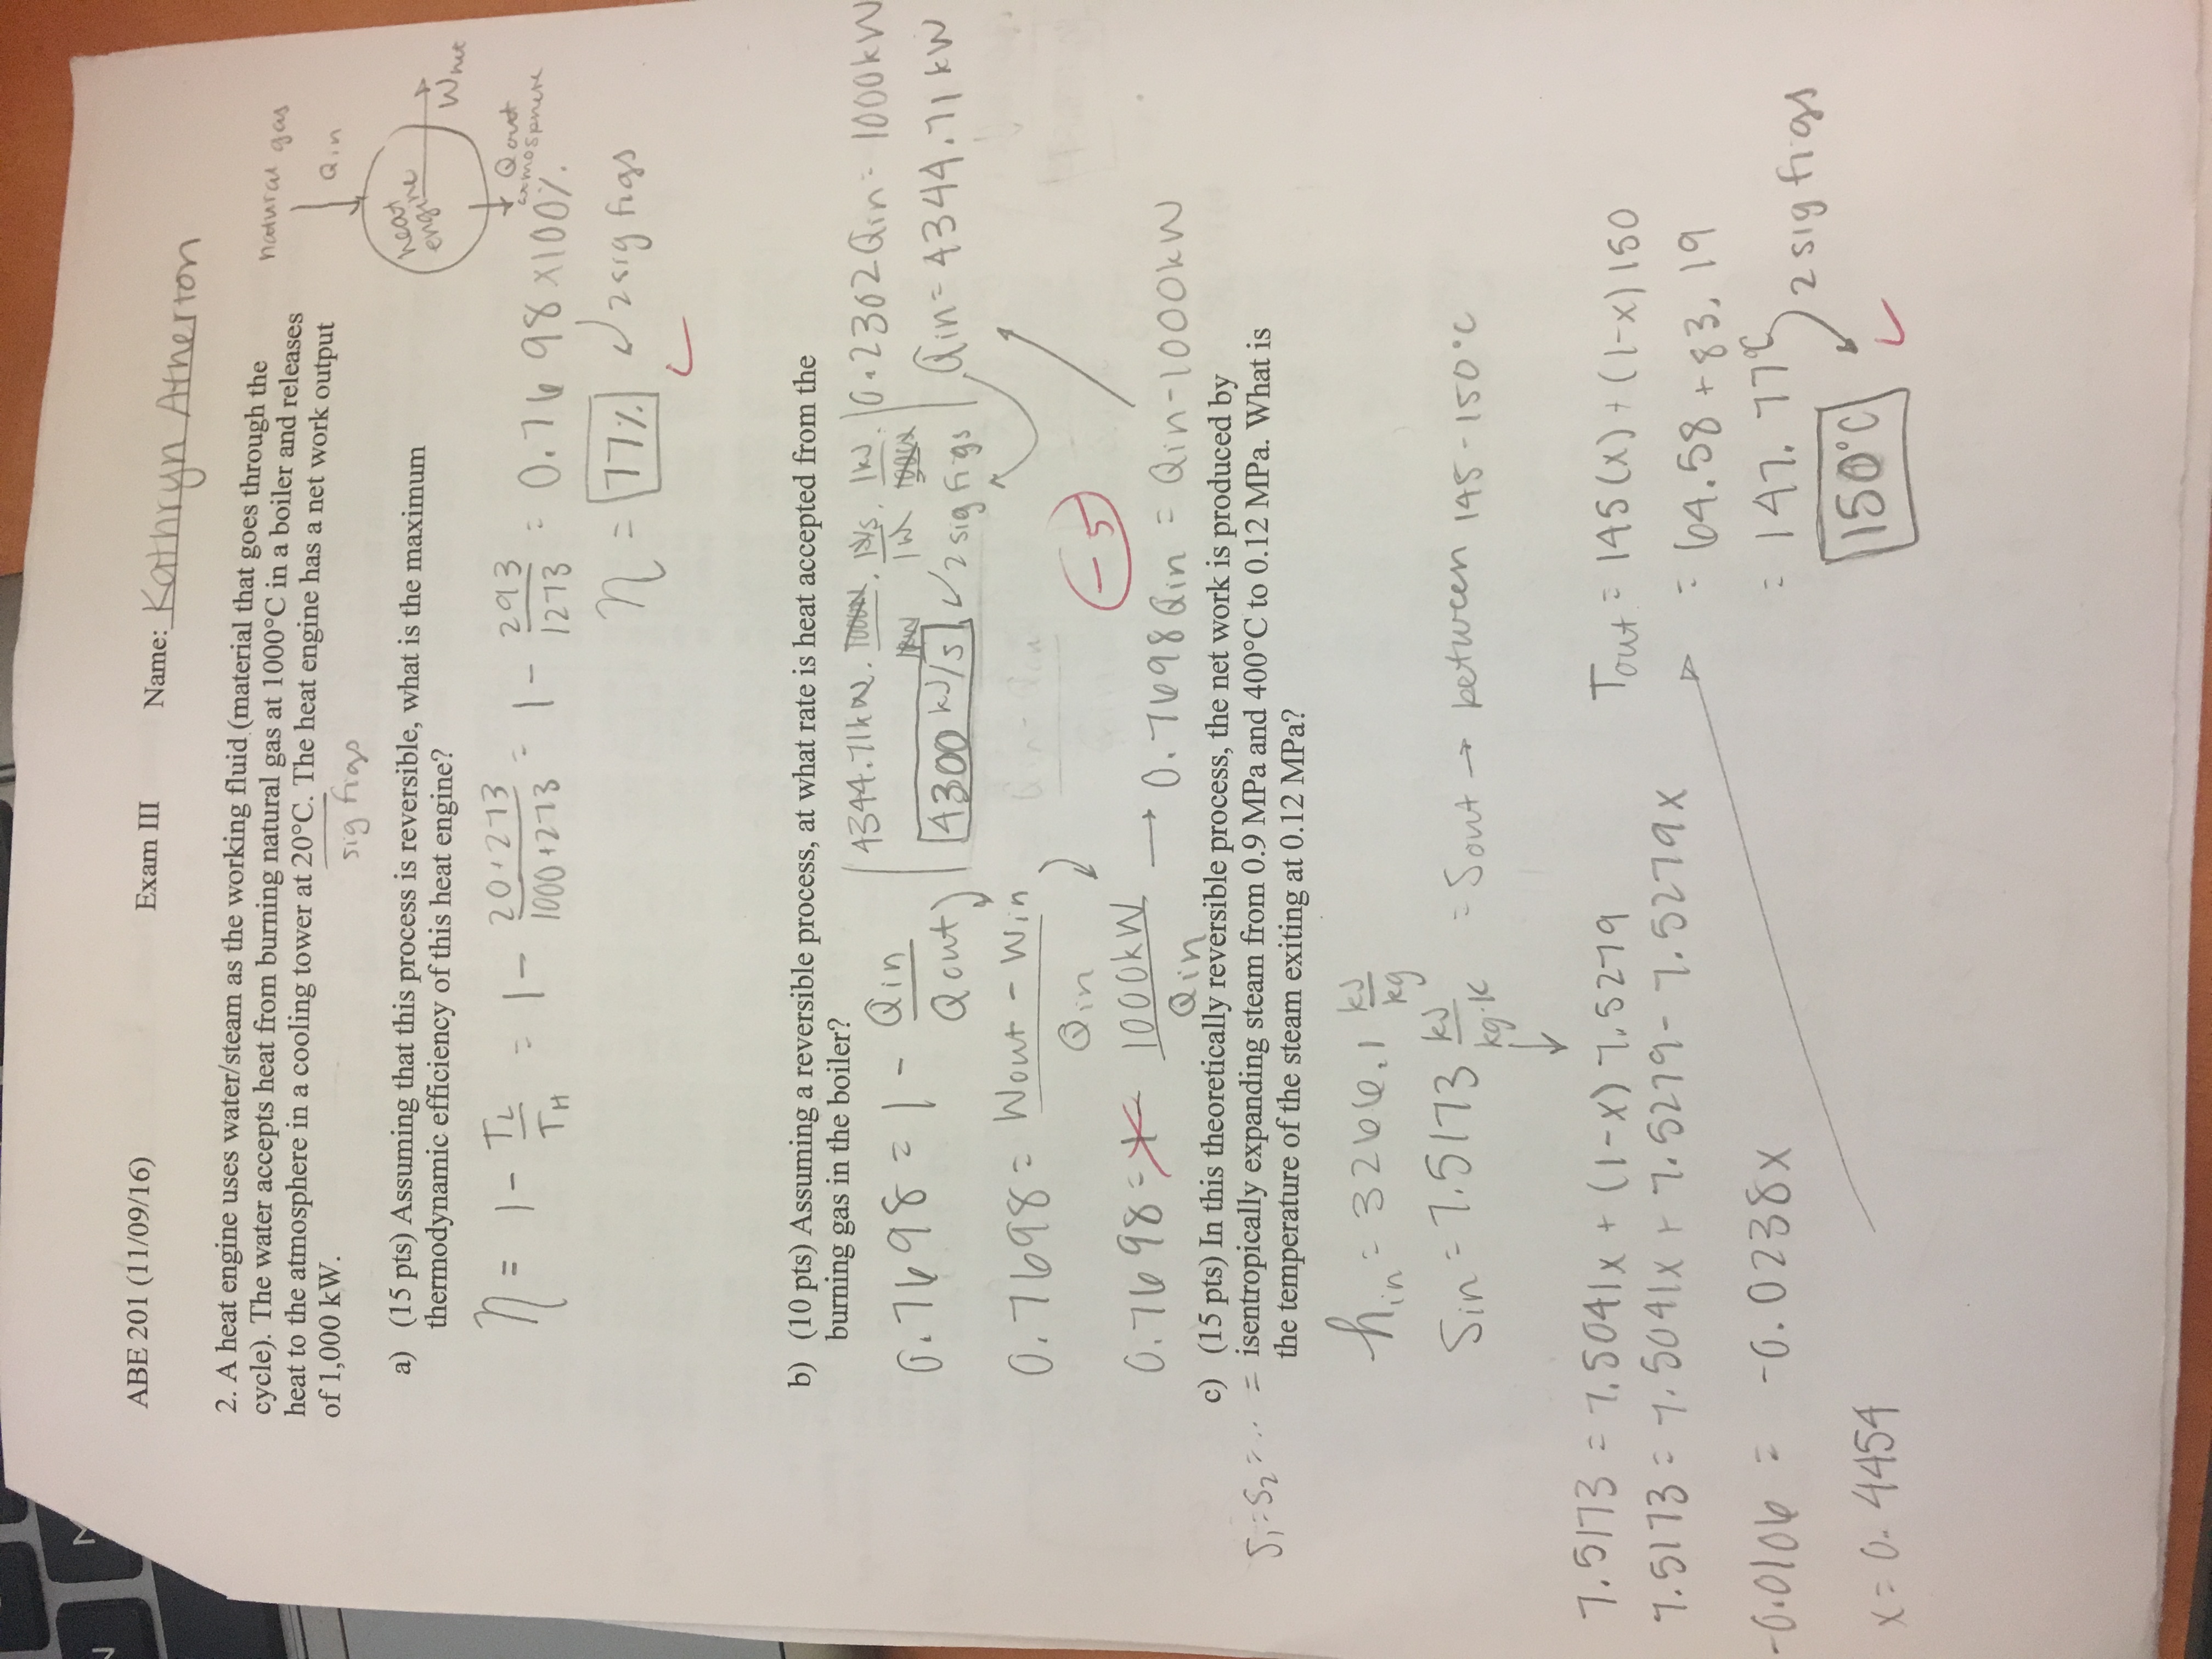 ABE 201 (11/09/16) Exam III Name: Kathryn Atherton
2. A heat engine uses water/steam as the working fluid (material that goes through the
cycle). The water accepts heat from burning natural gas at 1000°C in a boiler and releases
heat to the atmosphere in a cooling tower at 20°C. The heat engine has a net work output
of 1,000 kW.
sig figs
natural gas
Qin
heat
engine
Wnet
Qout
atmosphere
a) (15 pts) Assuming that this process is reversible, what is the maximum
thermodynamic efficiency of this heat engine?
η = 1 - TL/TH = 1 - (20+273)/(1000+273) = 1 - 293/1273 = 0.7698 x100%.
η = 77% 2 sig figs
b) (10 pts) Assuming a reversible process, at what rate is heat accepted from the
burning gas in the boiler?
0.7698 = 1 - Qin/Qout
0.7698 = (Wout - Win)/Qin
0.7698 = 1000kW/Qin → 0.7698Qin = Qin-1000kW
0.2302Qin = 1000kW
Qin = 4344.71 kW
4344.71kW. 1J/s/1W . 1kJ
4300 kJ/s 2 sig figs
-5
c) (15 pts) In this theoretically reversible process, the net work is produced by
S1=S2=.. = isentropically expanding steam from 0.9 MPa and 400°C to 0.12 MPa. What is
the temperature of the steam exiting at 0.12 MPa?
hin = 3266.1 kJ/kg
Sin = 7.5173 kJ/kg·K = Sout → between 145-150°C
7.5173 = 7.5041x + (1-x) 7.5279
7.5173 = 7.5041x + 7.5279 - 7.5279x
-0.0106 = -0.0238x
x = 0.4454
Tout = 145(x) + (1-x)150
= 64.58 + 83.19
= 147.77°C
2 sig figs
150°C